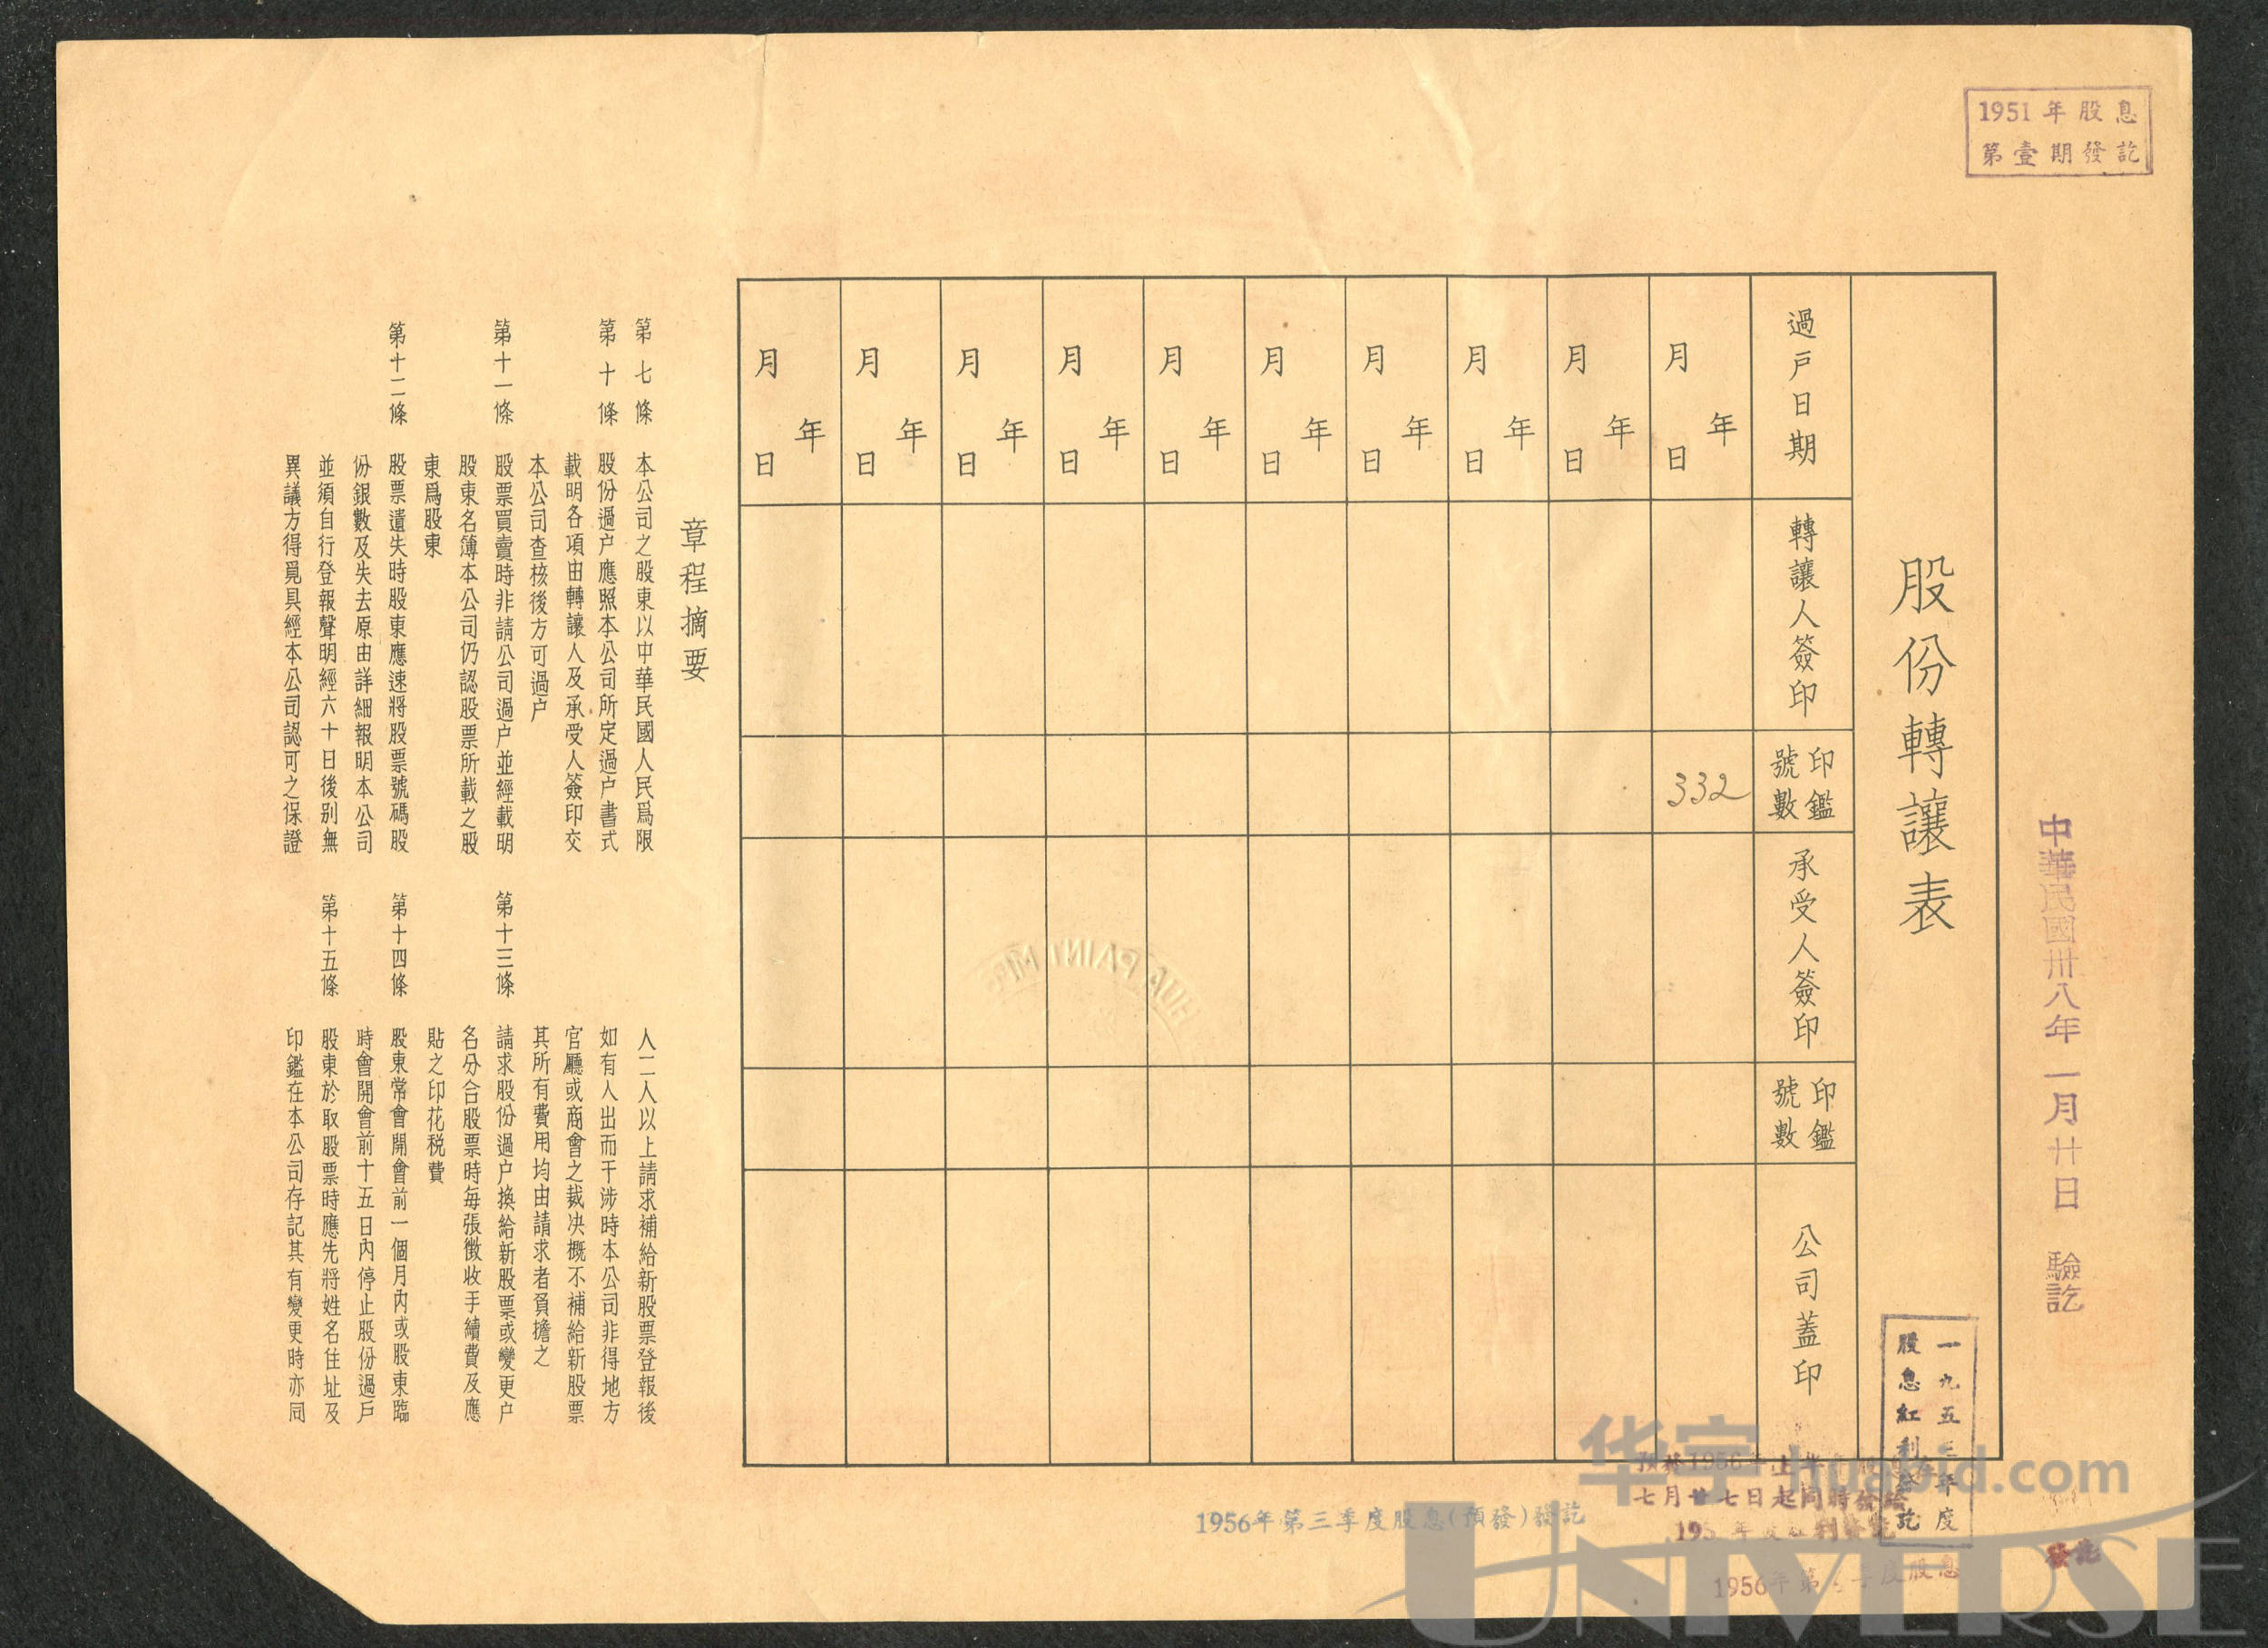 1951年股息
第壹期發訖
中華民國卅八年一月廿日 驗訖
股份轉讓表
過戶日期
轉讓人簽印
印鑑
號數
承受人簽印
印鑑
號數
公司蓋印
年
月 日
332
年
月 日
年
月 日
年
月 日
年
月 日
年
月 日
年
月 日
年
月 日
年
月 日
年
月 日
章程摘要
第七條 本公司之股東以中華民國人民爲限
第十條 股份過户應照本公司所定過户書式
載明各項由轉讓人及承受人簽印交
本公司查核後方可過户
第十一條 股票買賣時非請公司過户並經載明
股東名簿本公司仍認股票所載之股
東爲股東
第十二條 股票遺失時股東應速將股票號碼股
份銀數及失去原由詳細報明本公司
並須自行登報聲明經六十日後別無
異議方得覓具經本公司認可之保證
人二人以上請求補給新股票登報後
如有人出而干涉時本公司非得地方
官廳或商會之裁决概不補給新股票
其所有費用均由請求者負擔之
第十三條 請求股份過户換給新股票或變更户
名分合股票時每張徵收手續費及應
貼之印花税費
第十四條 股東常會開會前一個月內或股東臨
時會開會前十五日內停止股份過戶
第十五條 股東於取股票時應先將姓名住址及
印鑑在本公司存記其有變更時亦同
HUA PAINT M
一九五三年度
股息紅利發訖
1956年第三季度股息(預發)發訖
七月廿七日起同時發給
1956年第 季度股息
發訖
华宇 huabid.com
UNIVERSE